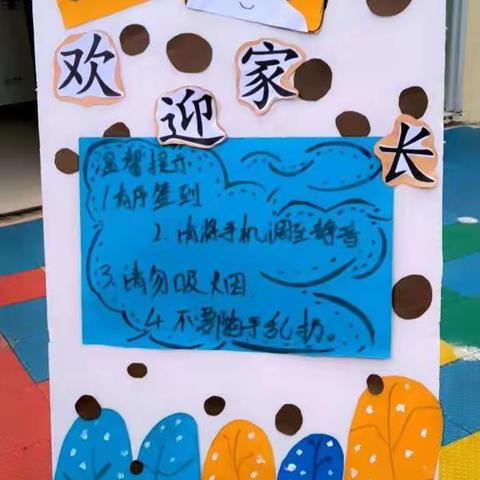 欢迎家长
温馨提示
1.有序签到
2.请将手机调至静音
3.请勿吸烟
4.不要随手乱扔。